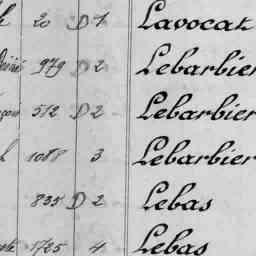 20 D 1 Lavocat
979 D 2 Lebarbier
512 D 2 Lebarbier
1088 3 Lebarbier
835 D 2 Lebas
1725 4 Lebas